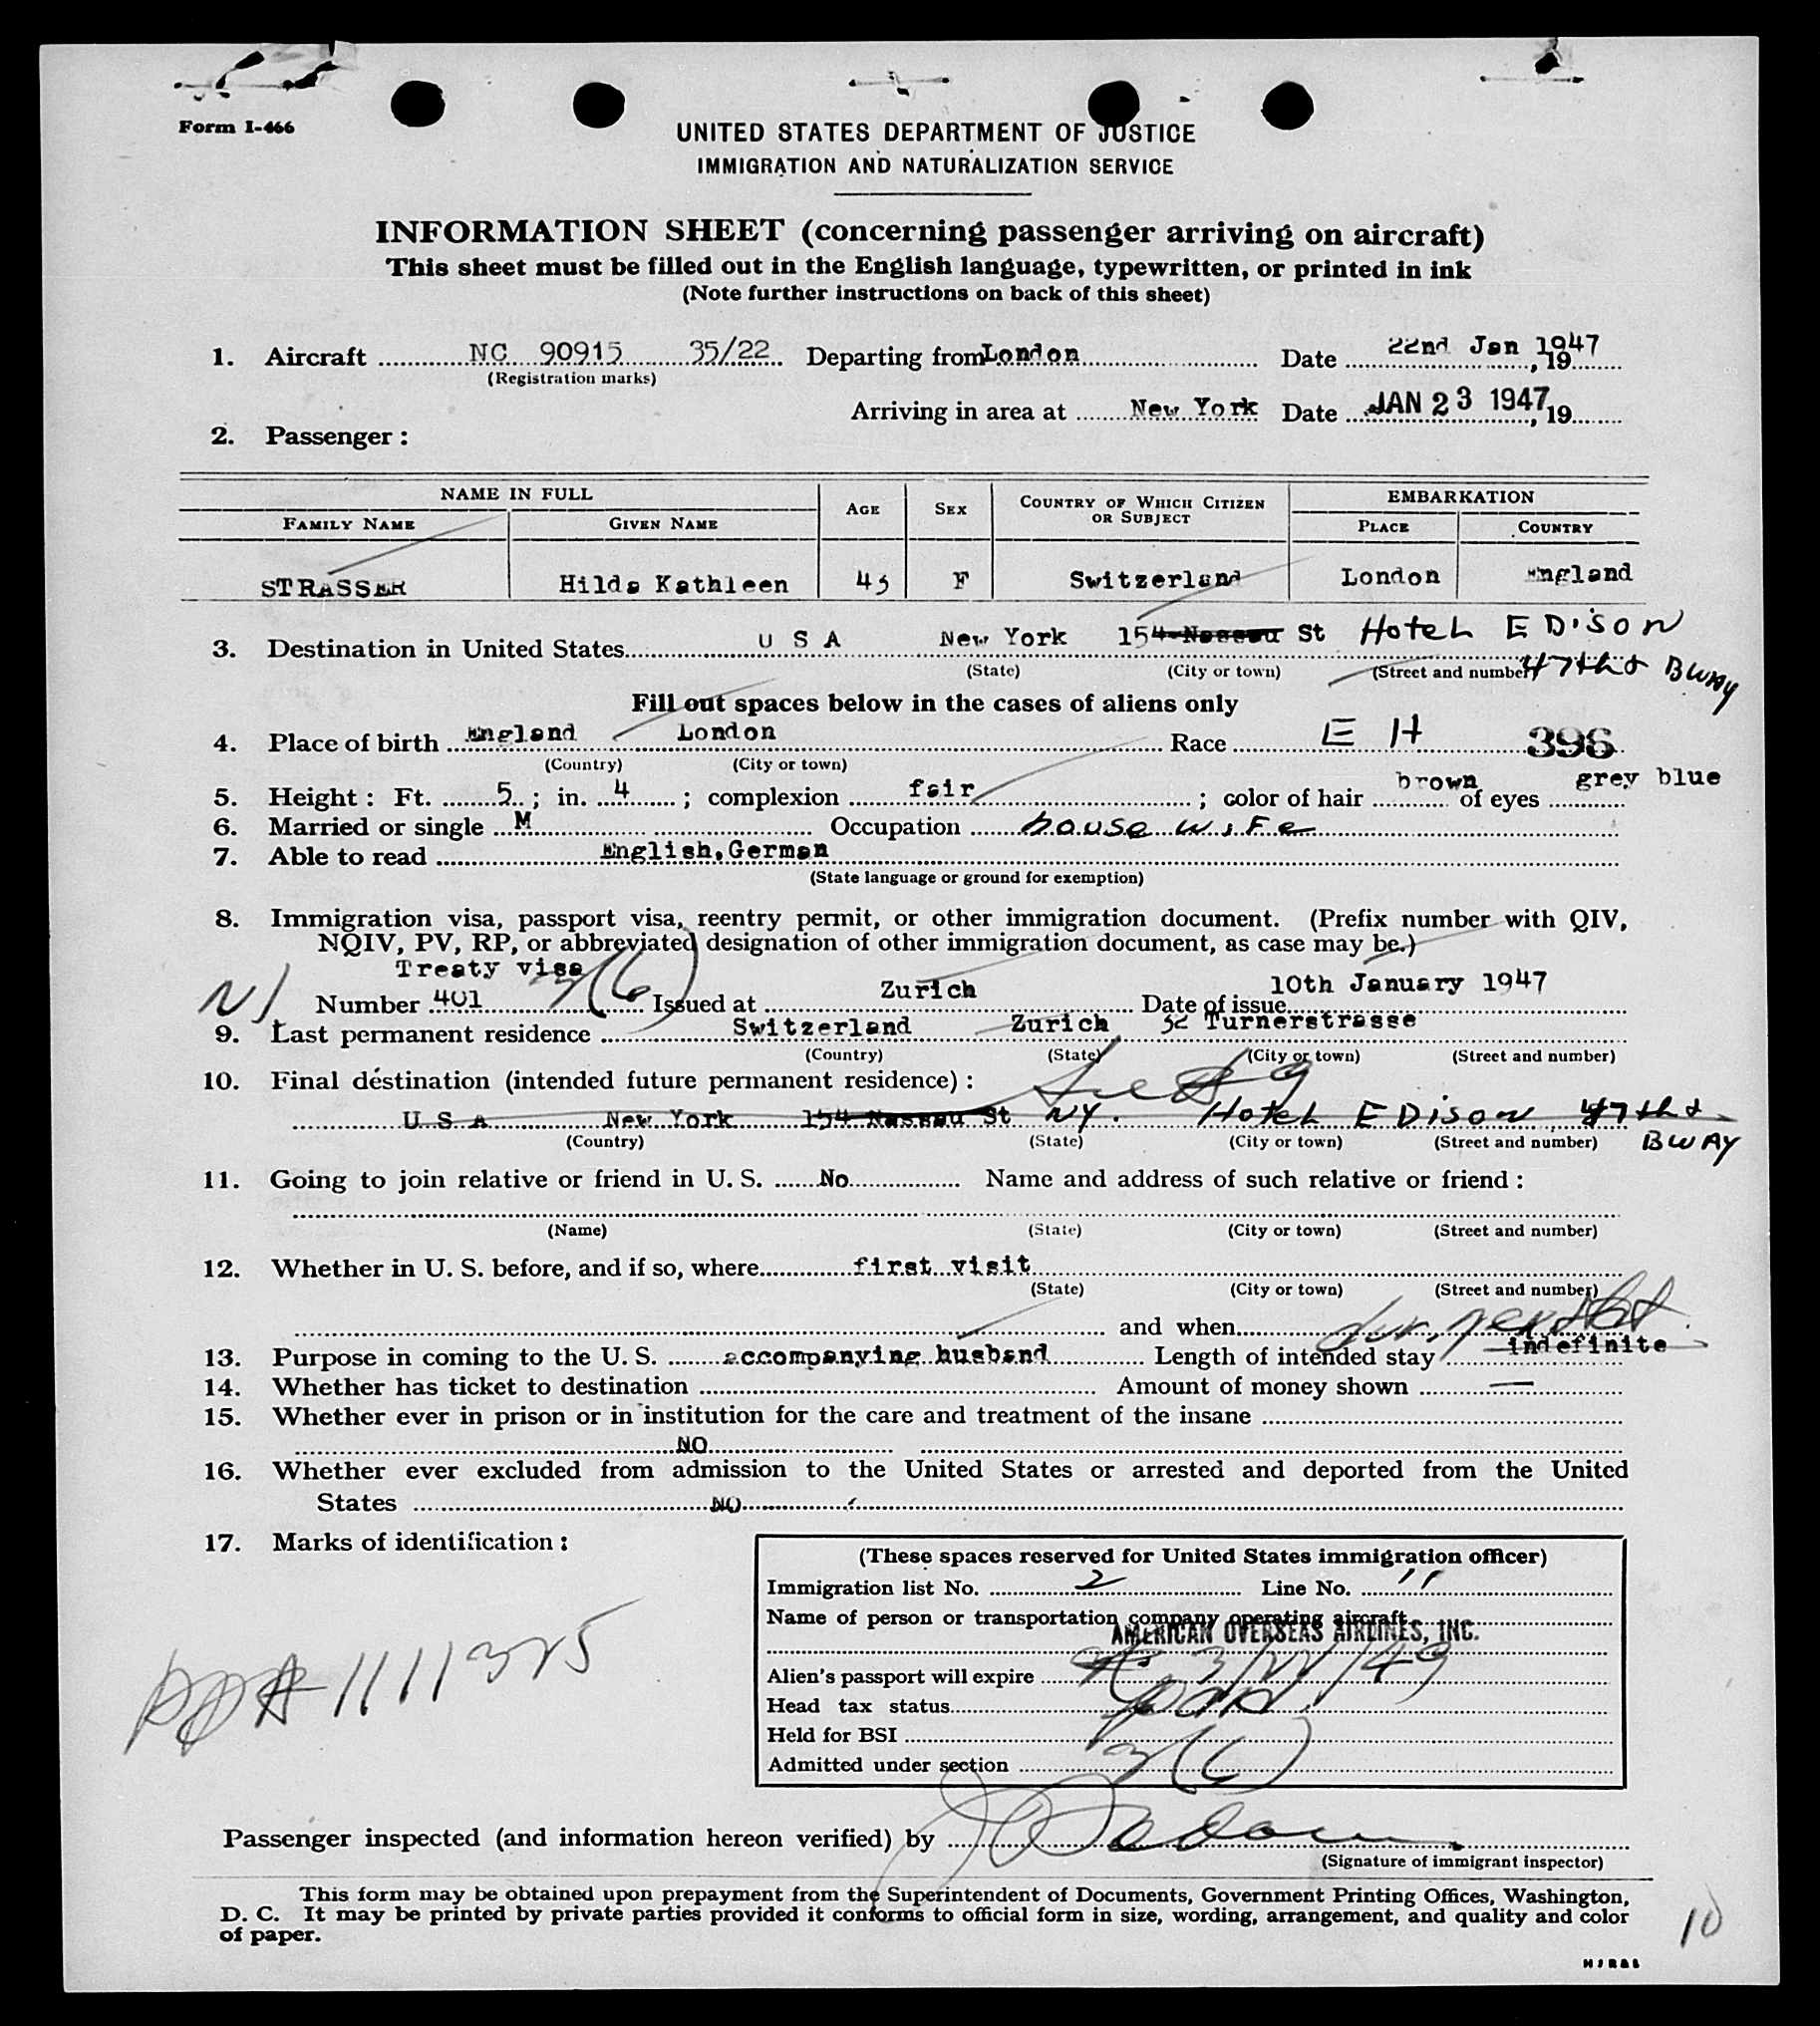 Form I-466
UNITED STATES DEPARTMENT OF JUSTICE
IMMIGRATION AND NATURALIZATION SERVICE
INFORMATION SHEET (concerning passenger arriving on aircraft)
This sheet must be filled out in the English language, typewritten, or printed in ink
(Note further instructions on back of this sheet)
1. Aircraft NC 90915 35/22 Departing from London Date 22nd Jan 1947, 19
(Registration marks)
Arriving in area at New York Date JAN 23 1947, 19
2. Passenger :
NAME IN FULL AGE SEX COUNTRY OF WHICH CITIZEN OR SUBJECT EMBARKATION
FAMILY NAME GIVEN NAME PLACE COUNTRY
STRASSER Hilda Kathleen 43 F Switzerland London England
3. Destination in United States U S A New York 154 Nassau St HOTEL EDISON
(State) (City or town) (Street and number) 47th & BWAY
Fill out spaces below in the cases of aliens only
4. Place of birth England London Race E H 396
(Country) (City or town)
5. Height : Ft. 5 ; in. 4 ; complexion fair ; color of hair brown of eyes grey blue
6. Married or single M Occupation house wife
7. Able to read English,German
(State language or ground for exemption)
8. Immigration visa, passport visa, reentry permit, or other immigration document. (Prefix number with QIV,
NQIV, PV, RP, or abbreviated designation of other immigration document, as case may be.)
Treaty visa
Number 401 3(6) Issued at Zurich Date of issue 10th January 1947
9. Last permanent residence Switzerland Zurich 32 Turnerstrasse
(Country) (State) (City or town) (Street and number)
10. Final destination (intended future permanent residence) : See # 9
U S A New York 154 Nassau St NY. HOTEL EDISON 47th &
(Country) (State) (City or town) (Street and number) BWAY
11. Going to join relative or friend in U. S. No Name and address of such relative or friend :
(Name) (State) (City or town) (Street and number)
12. Whether in U. S. before, and if so, where first visit
(State) (City or town) (Street and number)
and when
13. Purpose in coming to the U. S. accompanying husband Length of intended stay indefinite
14. Whether has ticket to destination Amount of money shown —
15. Whether ever in prison or in institution for the care and treatment of the insane
NO
16. Whether ever excluded from admission to the United States or arrested and deported from the United
States NO
17. Marks of identification :
(These spaces reserved for United States immigration officer)
Immigration list No. 2 Line No. 11
Name of person or transportation company operating aircraft
AMERICAN OVERSEAS AIRLINES, INC.
Alien's passport will expire
Head tax status
Held for BSI
Admitted under section 3(6)
1111325
Passenger inspected (and information hereon verified) by
(Signature of immigrant inspector)
This form may be obtained upon prepayment from the Superintendent of Documents, Government Printing Offices, Washington,
D. C. It may be printed by private parties provided it conforms to official form in size, wording, arrangement, and quality and color
of paper.
10